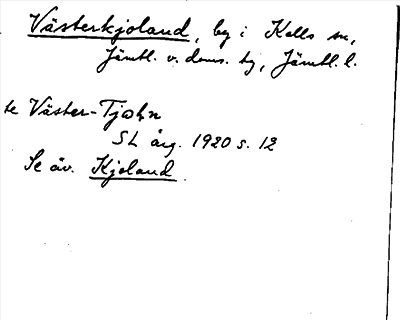 Västerkjoland, by i Kalls sn,
Jämtl. v. doms. tg, Jämtl. l.
te Väster-Tjohn
SL årg. 1920 s. 12
Se äv. Kjoland.